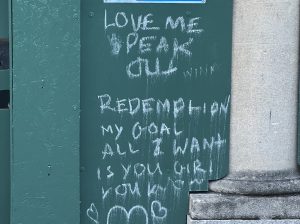 LOVE ME
SPEAK
OUT
REDEMPTION
MY GOAL
ALL I WANT
IS YOU GIRL
YOU